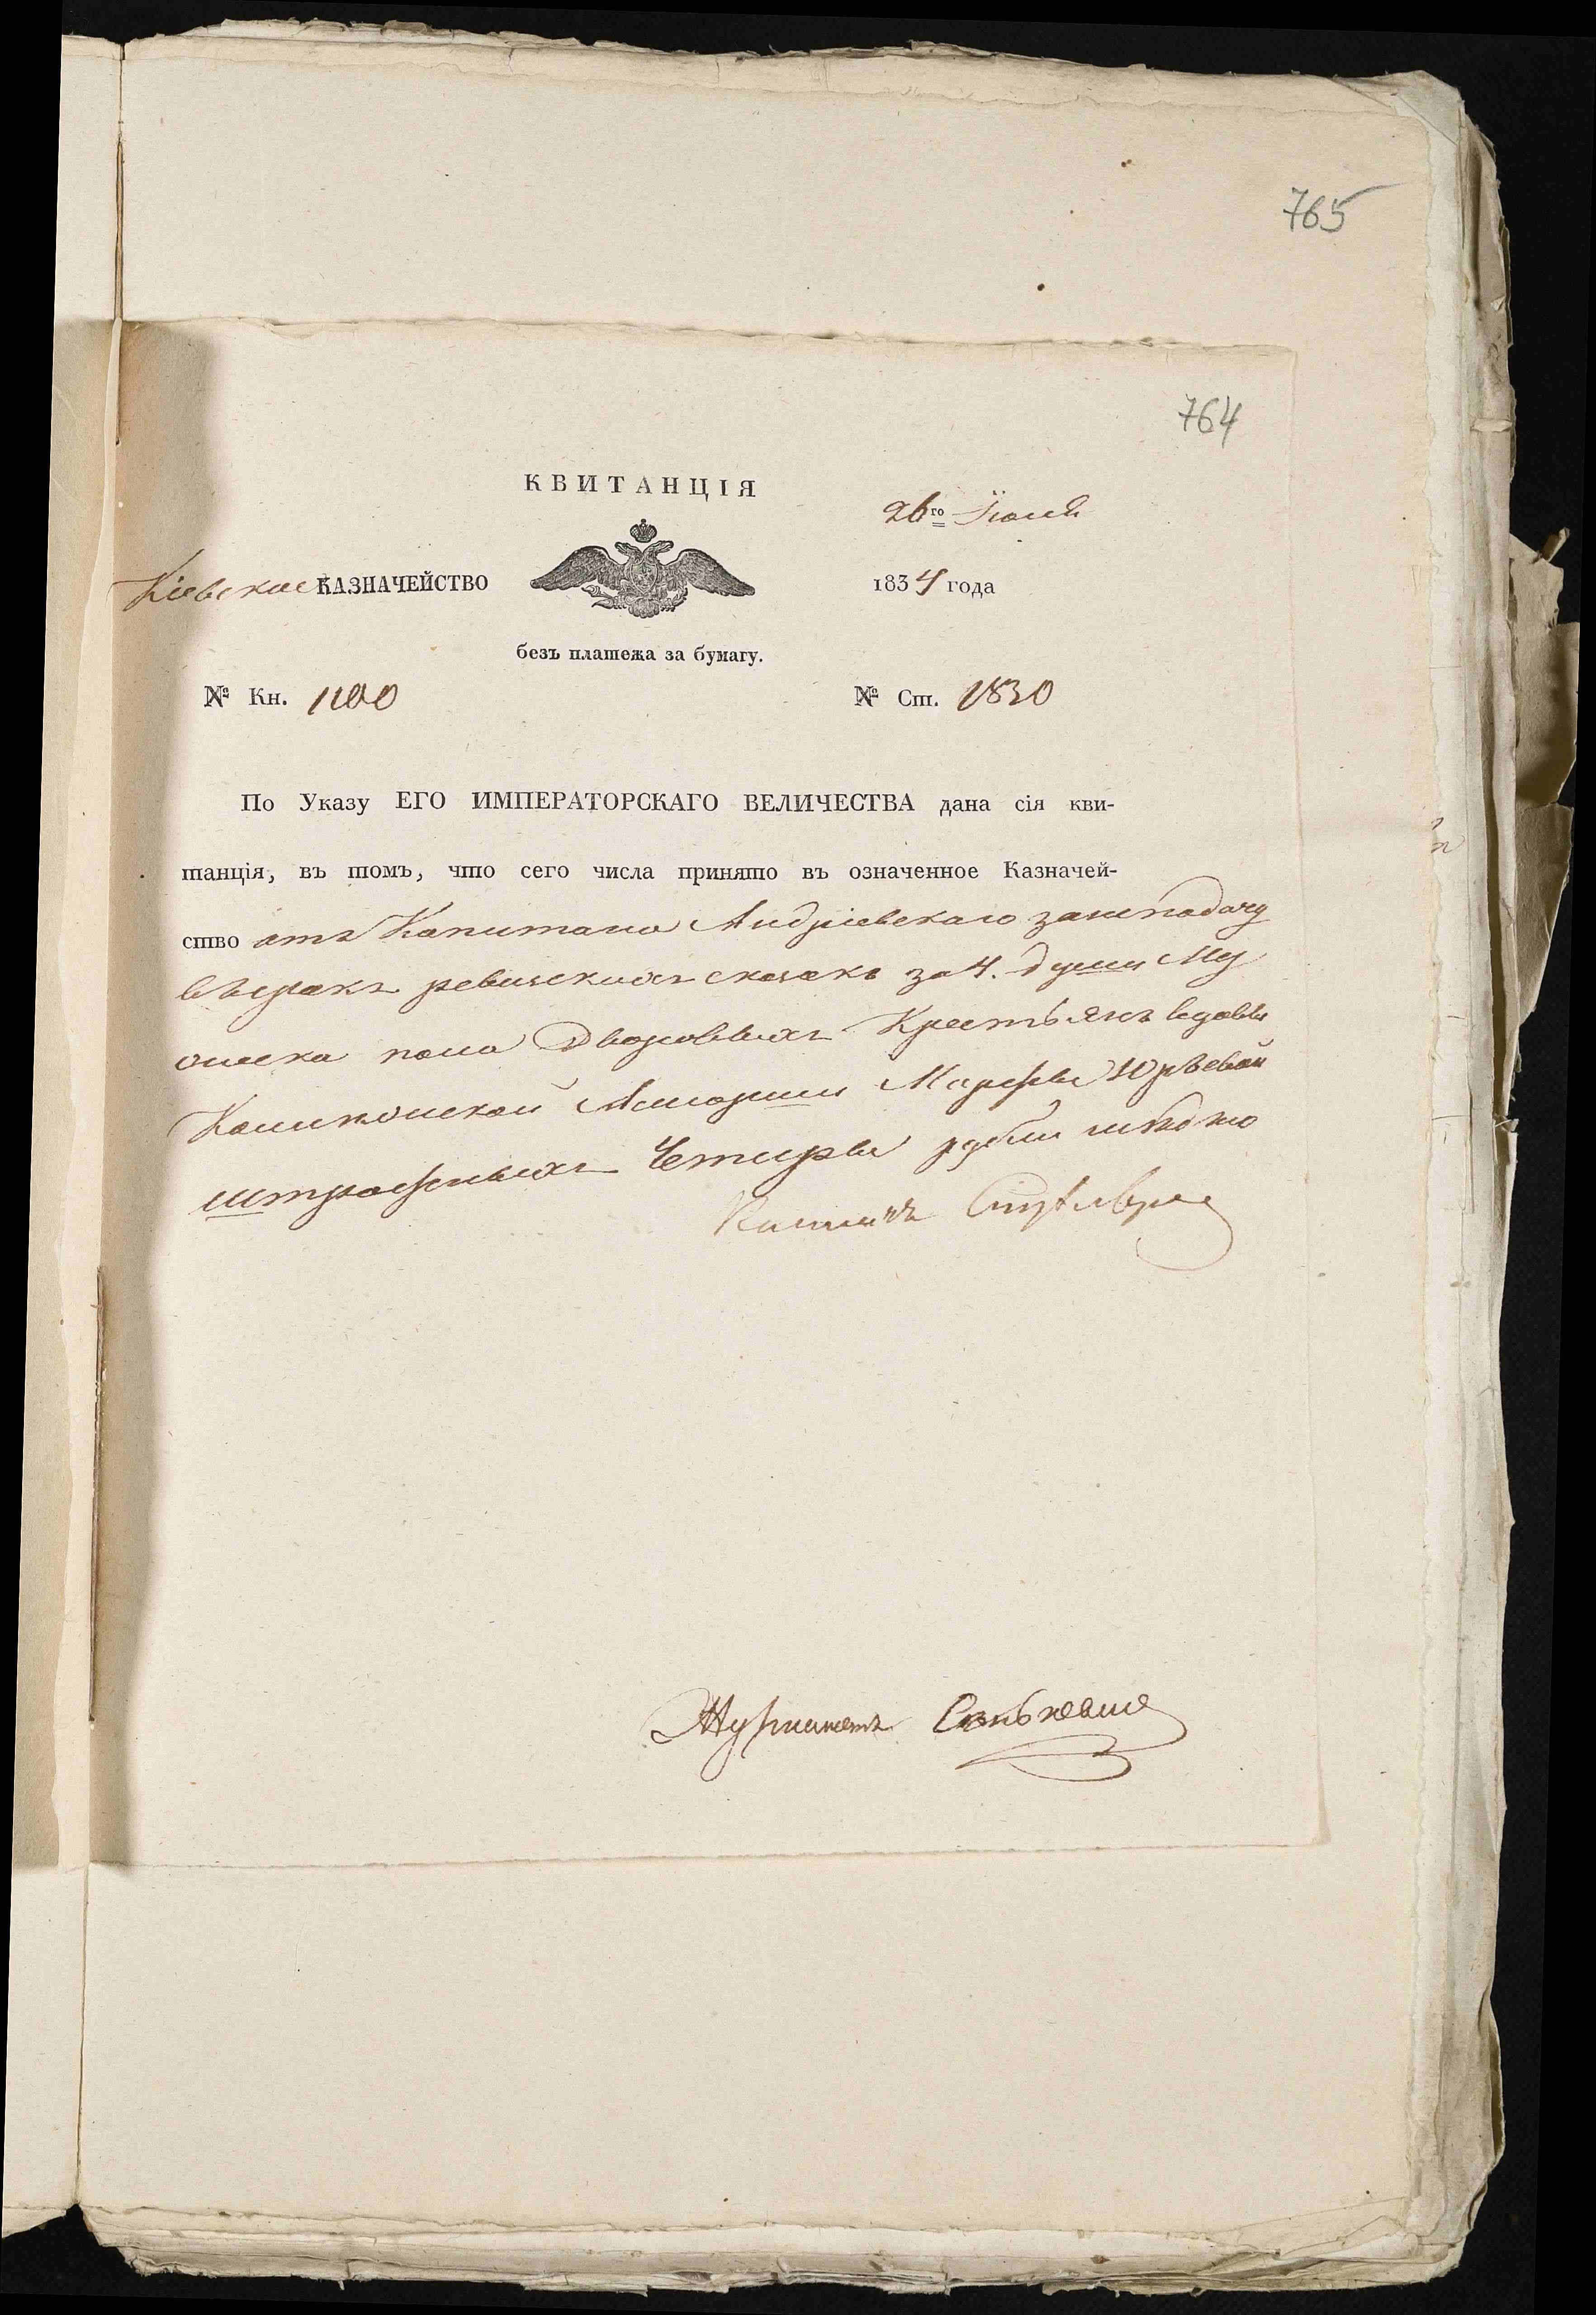 765
764
КВИТАНЦІЯ
26го Іюня
Кіевское КАЗНАЧЕЙСТВО
1834 года
безъ платежа за бумагу.
№ Кн. 1100
№ Ст. 1830
По Указу ЕГО ИМПЕРАТОРСКАГО ВЕЛИЧЕСТВА дана сія кви-
танція, въ томъ, что сего числа принято въ означенное Казначей-
ство отъ Капитана Андріевскаго занеподачу
въсрокъ ревизскихъ сказокъ за 4. души Му
онска пола Дворовыхъ Крестьянъ вдовы
Марфы Юрьевой
штрафныхъ Четыре рубли
Журналистъ